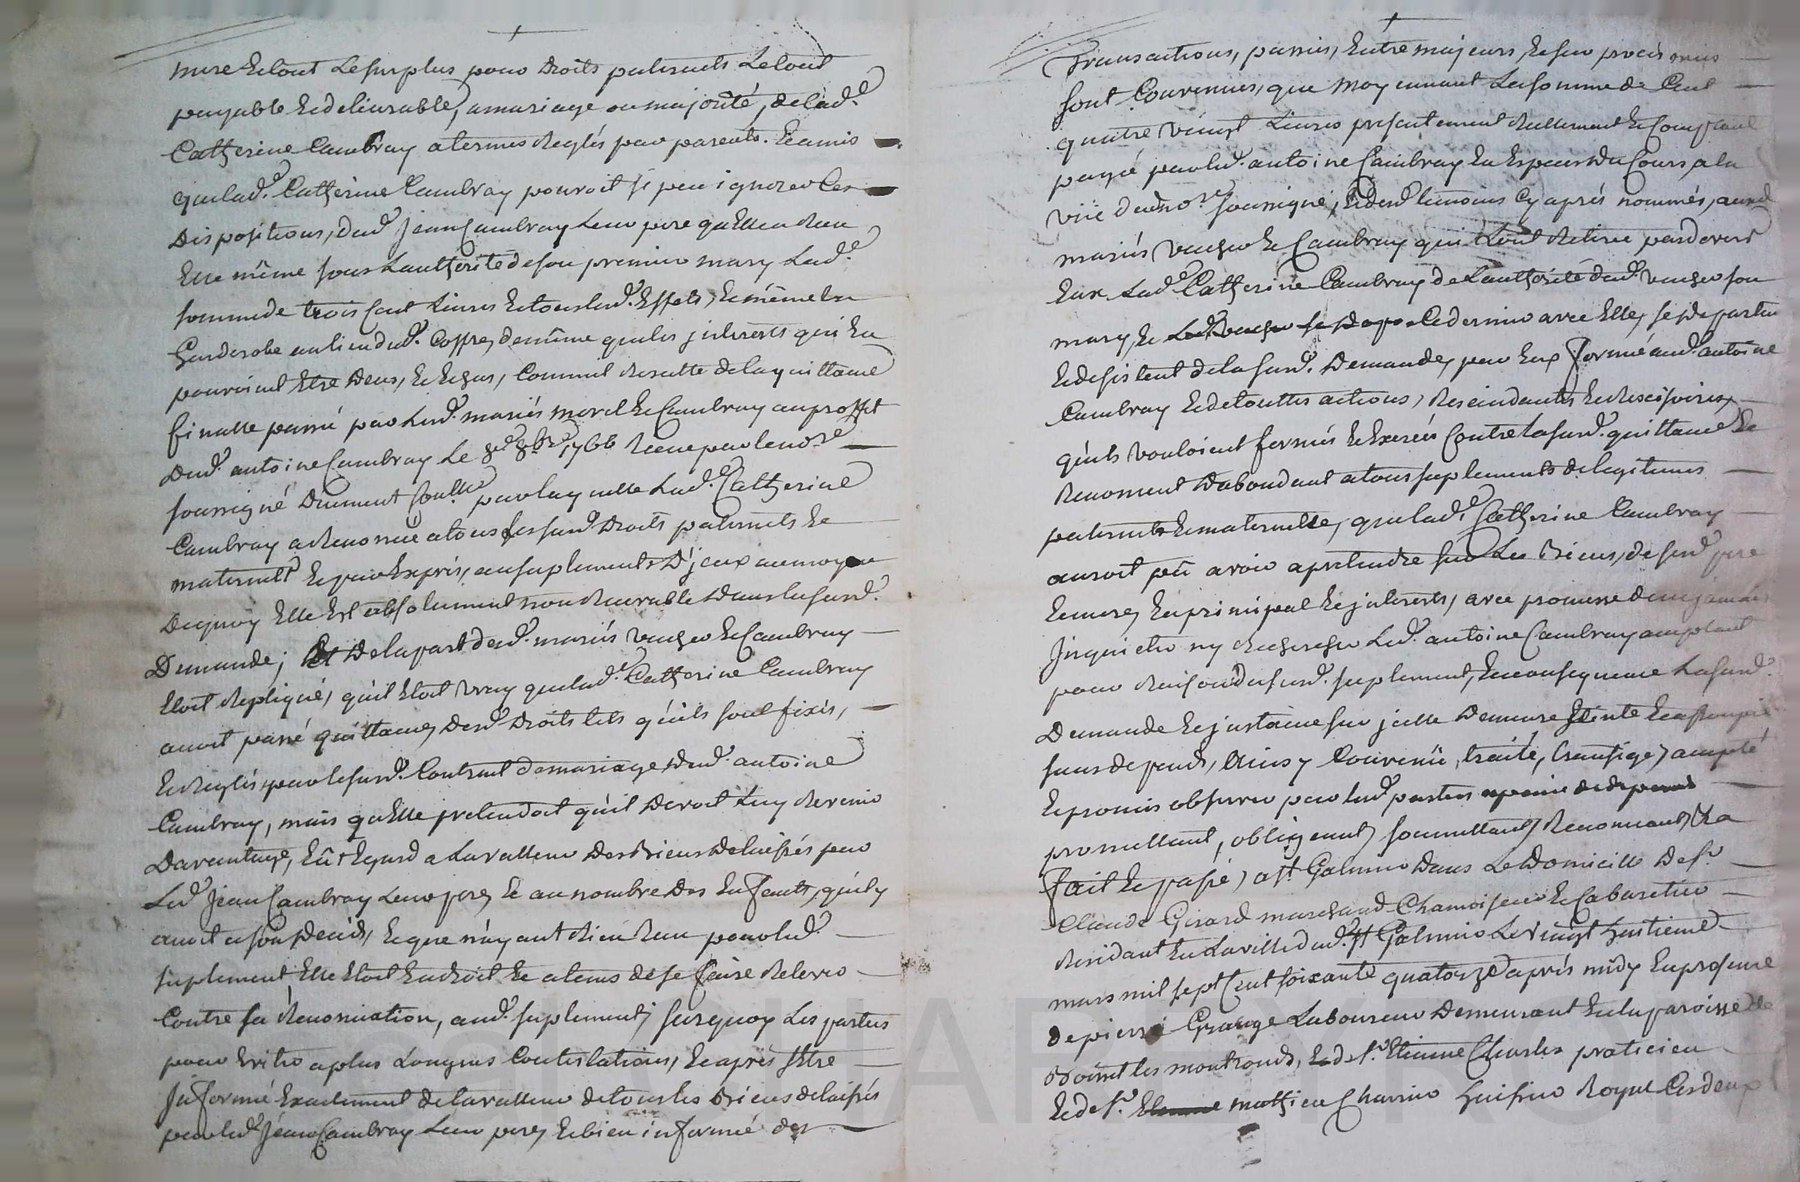 mere Et tout Le surplus pour Droits paternels Le tout
payable Et delivrable, a mariage ou majorité, de lad.e
Catherine Cambray a termes Reglés par parents. Et amis
que lad.e Catherine Cambray pouvoit si peu ignorer Les
Dispositions, dud. Jean Cambray Leur pere qu'Elle a Recu
Elle même sous Lautherité de son premier mary Lad.e
somme de trois Cent Livres Et tous lesd. Effets, Et même la
Garderobe au lieu dud. Coffre, de même que les jnterets qui En
pouvoient Etre Deus, Et Echus, Comme il Resulte de la quittance
finalle passé par Lesd. mariés morel Et Cambray au proffit
Dud. antoine Cambray Le 8e 8bre 1766 Recue par Le no.re
soussigné Duement par laquelle Lad.e Catherine
Cambray a Renoncé a tous sesd. Droits paternels Et
maternels Et par Exprés, au suplement D'jceux au moyen
Dequoy Elle Est absolument non Recevable Dans sa susd.
Demande; Et De la part desd. mariés Et Cambray
Etoit Repliqué, qu'il Etoit vray que lad.e Catherine Cambray
avoit passé quittance, Desd. Droits tels qu'ils sont fixés,
Et Reglés par le susd. Contract de mariage, dud. antoine
Cambray, mais qu'Elle pretendoit qu'il Devoit Luy Revenir
Davantage, Eû Egard a La valleur Des Biens Delaissés par
Led. Jean Cambray Leur pere, Et au nombre Des Enfants, qu'il y
avoit a son Decéds, Et que n'ayant Rien Recu pour led.
suplement, Elle Etoit En droit Et a tems de se faire Relever
Contre sa Renonciation, aud. suplement; sur quoy Les parties
pour Eviter a plus Longues Contestations, Et aprés s'Etre
Jnformé Exactement de la valleur de tous les Biens delaissés
par led. Jean Cambray Leur pere, Et bien informé des
Transactions, permis, Entre majeurs, Et sur procés mus
sont Convenues, que moyennant La somme de Cent
quatre vingt Livres presentement Reellement Et Comptant
payé par led. antoine Cambray En Especes Du Cours, a la
vüe dud. no.re soussigné, Et desd. temoins Cy aprés nommés, auxd.
mariés Et Cambray qui L'ont Retiree pardevers
Eux Lad.e Catherine Cambray de L'autherité dud. son
mary, Et Ce dernier avec Elle, se departent
Et desistent de la susd. Demande, par Eux formé aud. antoine
Cambray Et de touttes actions, Rescindantes Et Rescisoires,
qu'ils vouloient former Et Exercer Contre lasusd. quittance Et
Renoncent Dabondant a tous suplements de legitimes
paternelle Et maternelle, que lad.e Catherine Cambray
auroit peü avoir a pretendre sur Les Biens, de sesd. pere
Et mere, En principal Et jnterets, avec promesse de n'en jamais
Jnquieter ny Rechercher Led. antoine Cambray
pour Raison du susd. suplement, En consequence La susd.
Demande Et jnstance sur jcelle Demeure Eteinte Et assoupie
sans depends, Ainsy Convenü, traité, transigé, accepté
Et promis observer par lesd. parties a peine de depends
promettant, obligeant, soumettant, Renoncant, Etc.a
fait Et passé, a St Galmier Dans Le Domicille De s.r
Claude Girard marchand Chamoiseur Et Cabaretier
Residant En La ville dud. St Galmier Le vingt huitieme
mars mil sept Cent soixante quatorze aprés midy En presence
de pierre Grange Laboureur Demeurant En la paroisse de
Boisset les montrond, Et de s.r Etienne Charles praticien
Et de s.r mathieu Charvin Huissier Royal Ces deux